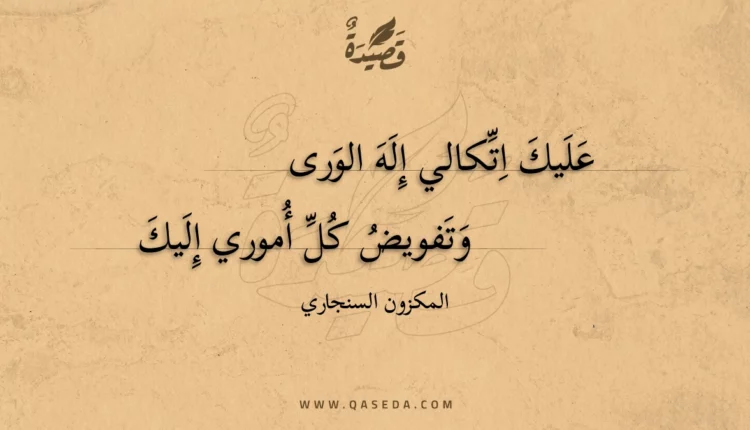 قَصِيدَةٌ
عَلَيكَ اِتِّكالي إِلَهَ الوَرى
وَتَفويضُ كُلِّ أُموري إِلَيكَ
المكزون السنجاري
WWW.QASEDA.COM